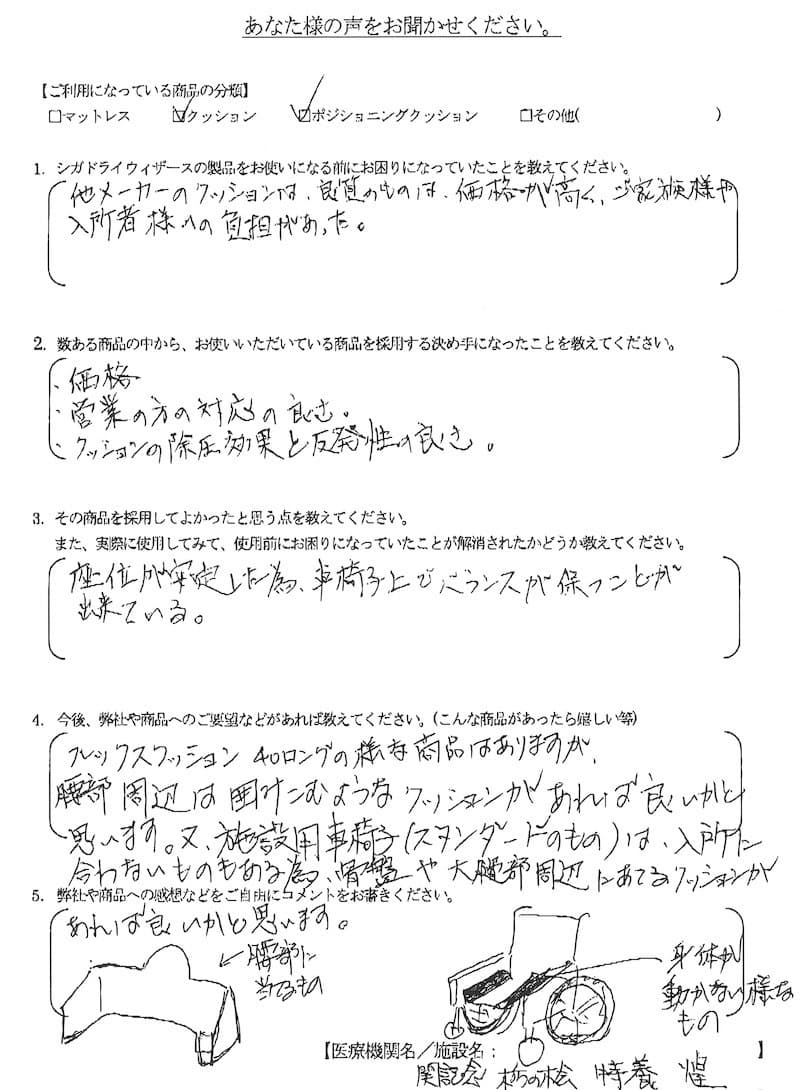 あなた様の声をお聞かせください。
【ご利用になっている商品の分類】
□マットレス ☑クッション ☑ポジショニングクッション □その他( )
1. シガドライウィザースの製品をお使いになる前にお困りになっていたことを教えてください。
他メーカーのクッションは、良質のものは、価格が高く、ご家族様や
入所者様への負担があった。
2. 数ある商品の中から、お使いいただいている商品を採用する決め手になったことを教えてください。
・価格
・営業の方の対応の良さ。
・クッションの除圧効果と反発性の良さ。
3. その商品を採用してよかったと思う点を教えてください。
また、実際に使用してみて、使用前にお困りになっていたことが解消されたかどうか教えてください。
座位が安定した為、車椅子上でバランスが保つことが
出来ている。
4. 今後、弊社や商品へのご要望などがあれば教えてください。(こんな商品があったら嬉しい等)
フレックスクッション 40ロングの様な商品はありますが、
腰部周辺は囲けこむようなクッションがあれば良いかと
思います。又、施設用車椅子(スタンダードのもの)は、入所に
合わないものもある為、骨盤や大腿部周辺にあてるクッションが
5. 弊社や商品への感想などをご自由にコメントをお書きください。
あれば良いかと思います。
←腰部に
当てるもの
身体が
動かない様な
もの
【医療機関名/施設名: 】
特養